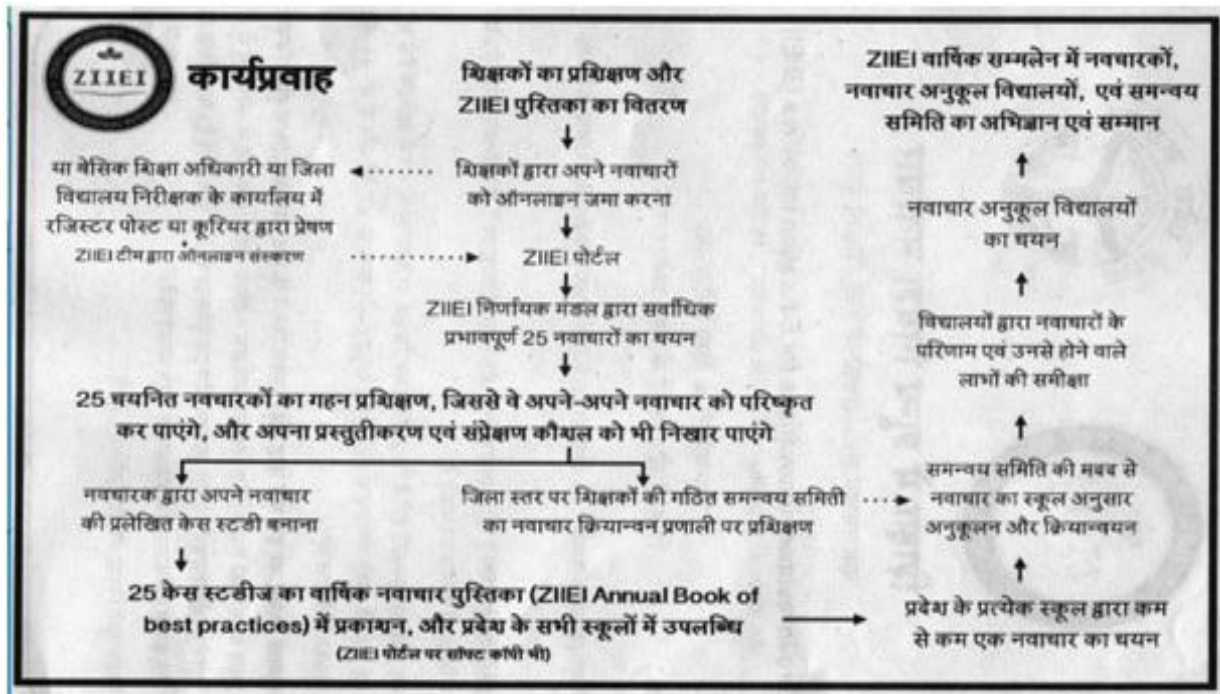 ZIIEI
कार्यप्रवाह
शिक्षकों का प्रशिक्षण और
ZIIEI पुस्तिका का वितरण
शिक्षकों द्वारा अपने नवाचारों
को ऑनलाइन जमा करना
या बेसिक शिक्षा अधिकारी या जिला
विद्यालय निरीक्षक के कार्यालय में
रजिस्टर पोस्ट या कूरियर द्वारा प्रेषण
ZIIEI टीम द्वारा ऑनलाइन संस्करण
ZIIEI पोर्टल
ZIIEI निर्णायक मंडल द्वारा सर्वाधिक
प्रभावपूर्ण 25 नवाचारों का चयन
25 चयनित नवचारकों का गहन प्रशिक्षण, जिससे वे अपने-अपने नवाचार को परिष्कृत
कर पाएंगे, और अपना प्रस्तुतीकरण एवं संप्रेक्षण कौशल को भी निखार पाएंगे
नवचारक द्वारा अपने नवाचार
की प्रलेखित केस स्टडी बनाना
जिला स्तर पर शिक्षकों की गठित समन्वय समिती
का नवाचार क्रियान्वन प्रणाली पर प्रशिक्षण
25 केस स्टडीज का वार्षिक नवाचार पुस्तिका (ZIIEI Annual Book of
best practices) में प्रकाशन, और प्रदेश के सभी स्कूलों में उपलब्धि
(ZIIEI पोर्टल पर सॉफ्ट कॉपी भी)
प्रदेश के प्रत्येक स्कूल द्वारा कम
से कम एक नवाचार का चयन
समन्वय समिति की मदद से
नवाचार का स्कूल अनुसार
अनुकूलन और क्रियान्वयन
विद्यालयों द्वारा नवाचारों के
परिणाम एवं उनसे होने वाले
लाभों की समीक्षा
नवाचार अनुकूल विद्यालयों
का चयन
ZIIEI वार्षिक सम्मलेन में नवचारकों,
नवाचार अनुकूल विद्यालयों, एवं समन्वय
समिति का अभिज्ञान एवं सम्मान